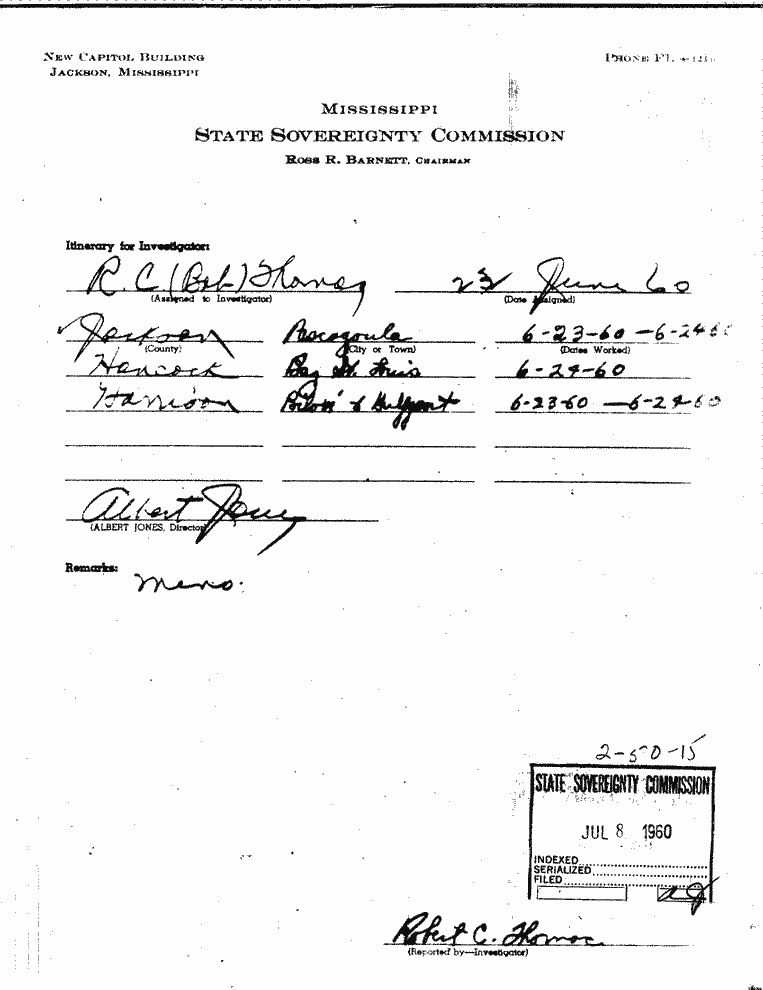 NEW CAPITOL BUILDING
JACKSON, MISSISSIPPI
PHONE FL 4-1211
MISSISSIPPI
STATE SOVEREIGNTY COMMISSION
ROSS R. BARNETT, CHAIRMAN
Itinerary for Investigator:
R. C. (Bob) Thomas 23 June 60
(Assigned to Investigator) (Date Assigned)
Jackson Pascagoula 6-23-60 - 6-24-60
(County) (City or Town) (Dates Worked)
Hancock Bay St. Louis 6-24-60
Harrison Biloxi & Gulfport 6-23-60 - 6-24-60
Albert Jones
(ALBERT JONES, Director)
Remarks:
Memo.
2-50-15
STATE SOVEREIGNTY COMMISSION
JUL 8 1960
INDEXED
SERIALIZED
FILED
Robert C. Thomas
(Reported by—Investigator)